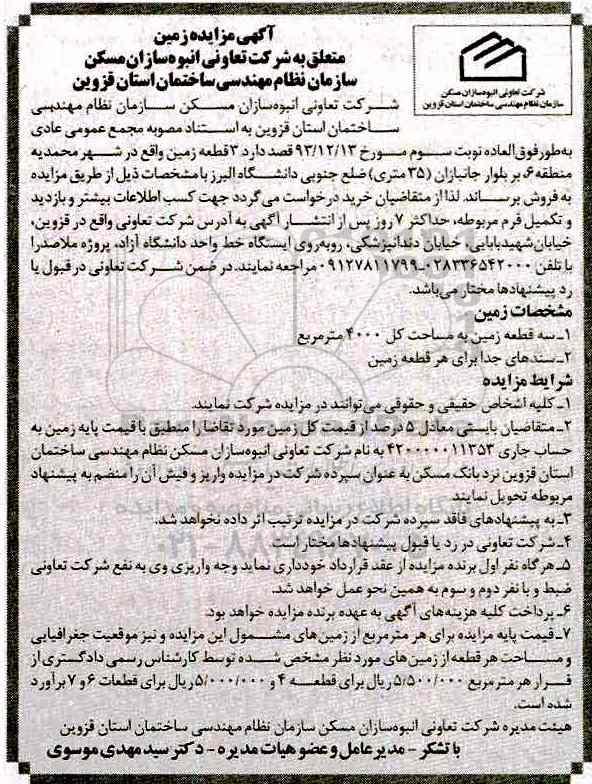 آگهی مزایده زمین
متعلق به شرکت تعاونی انبوه‌سازان مسکن
سازمان نظام مهندسی ساختمان استان قزوین
شرکت تعاونی انبوه‌سازان مسکن
سازمان نظام مهندسی ساختمان استان قزوین
شرکت تعاونی انبوه‌سازان مسکن سازمان نظام مهندسی
ساختمان استان قزوین به استناد مصوبه مجمع عمومی عادی
به‌طور فوق‌العاده نوبت سوم مورخ ۹۳/۱۲/۱۳ قصد دارد ۳ قطعه زمین واقع در شهر محمدیه
منطقه ۶، بر بلوار جانبازان (۳۵ متری) ضلع جنوبی دانشگاه البرز با مشخصات ذیل از طریق مزایده
به فروش برساند. لذا از متقاضیان خرید درخواست می‌گردد جهت کسب اطلاعات بیشتر و بازدید
و تکمیل فرم مربوطه، حداکثر ۷ روز پس از انتشار آگهی به آدرس شرکت تعاونی واقع در قزوین،
خیابان شهید بابایی، خیابان دندانپزشکی، روبه‌روی ایستگاه خط واحد دانشگاه آزاد، پروژه ملاصدرا
با تلفن ۰۲۸۳۳۶۵۴۲۰۰۰-۰۹۱۲۷۸۱۱۷۹۹ مراجعه نمایند. در ضمن شرکت تعاونی در قبول یا
رد پیشنهادها مختار می‌باشد.
مشخصات زمین
۱ـ سه قطعه زمین به مساحت کل ۴۰۰۰ مترمربع
۲ـ سندهای جدا برای هر قطعه زمین
شرایط مزایده
۱ـ کلیه اشخاص حقیقی و حقوقی می‌توانند در مزایده شرکت نمایند.
۲ـ متقاضیان بایستی معادل ۵ درصد از قیمت کل زمین مورد تقاضا را منطبق با قیمت پایه زمین به
حساب جاری ۴۲۰۰۰۰۰۱۱۳۵۳ به نام شرکت تعاونی انبوه‌سازان مسکن نظام مهندسی ساختمان
استان قزوین نزد بانک مسکن به عنوان سپرده شرکت در مزایده واریز و فیش آن را منضم به پیشنهاد
مربوطه تحویل نمایند
۳ـ به پیشنهادهای فاقد سپرده شرکت در مزایده ترتیب اثر داده نخواهد شد.
۴ـ شرکت تعاونی در رد یا قبول پیشنهادها مختار است
۵ـ هرگاه نفر اول برنده مزایده از عقد قرارداد خودداری نماید وجه واریزی وی به نفع شرکت تعاونی
ضبط و با نفر دوم و سوم به همین نحو عمل خواهد شد.
۶ـ پرداخت کلیه هزینه‌های آگهی به عهده برنده مزایده خواهد بود.
۷ـ قیمت پایه مزایده برای هر مترمربع از زمین‌های مشمول این مزایده و نیز موقعیت جغرافیایی
و مساحت هر قطعه از زمین‌های مورد نظر مشخص شده توسط کارشناس رسمی دادگستری از
قرار هر مترمربع ۵/۵۰۰/۰۰۰ ریال برای قطعه ۴ و ۵/۰۰۰/۰۰۰ ریال برای قطعات ۶ و ۷ برآورد
شده است.
هیئت مدیره شرکت تعاونی انبوه‌سازان مسکن سازمان نظام مهندسی ساختمان استان قزوین
با تشکر - مدیر عامل و عضو هیات مدیره - دکتر سید مهدی موسوی